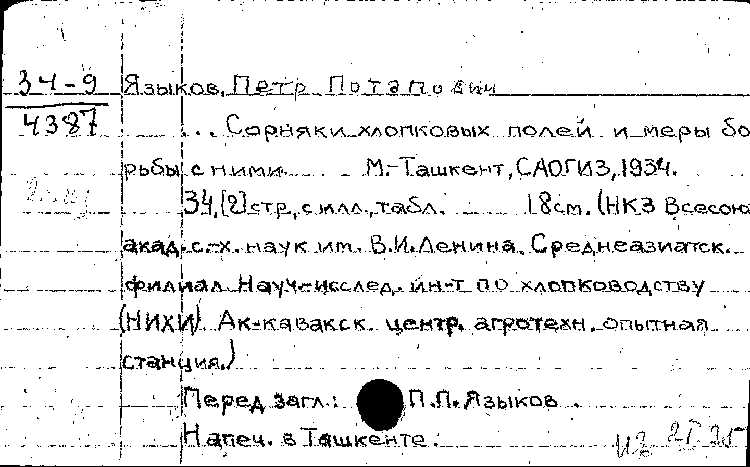 34-9
4387
Языков, Петр Потапович
... Сорняки хлопковых полей и меры бо
рьбы с ними. М.-Ташкент, САОГИЗ, 1934.
34,[2]стр, с илл., табл. 18см. (НКЗ Всесоюз
акад. с.-х. наук им. В.И.Ленина. Среднеазиатск.
филиал Науч-исслед. ин-т по хлопководству
(НИХИ) Ак-кавакск. центр. агротехн. опытная
станция.)
Перед загл.: П.П.Языков.
Напеч. в Ташкенте.